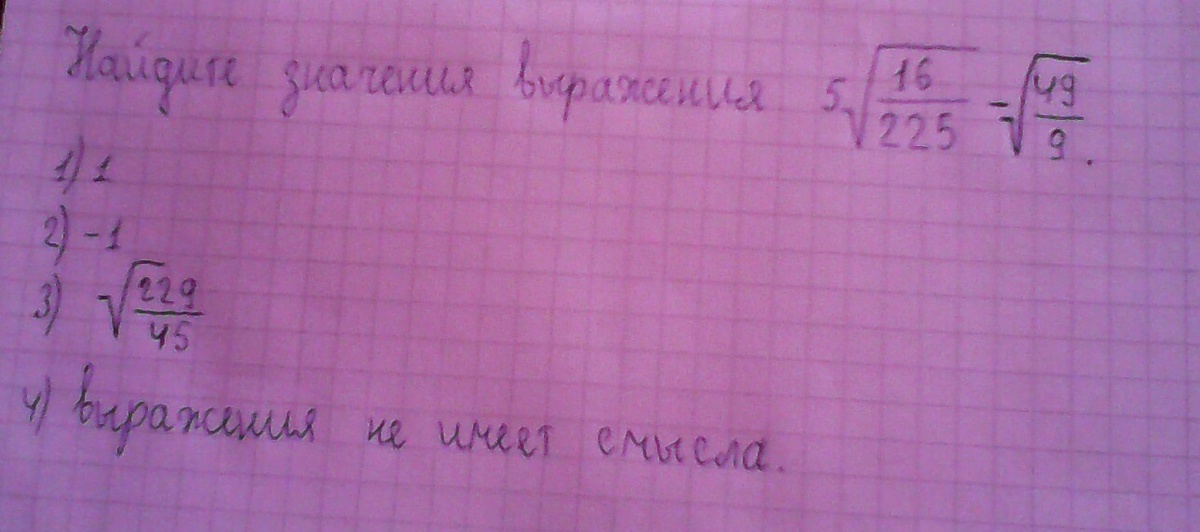 Найдите значения выражения 5√(16/225) - √(49/9).
1) 1
2) -1
3) √(229/45)
4) выражения не имеет смысла.